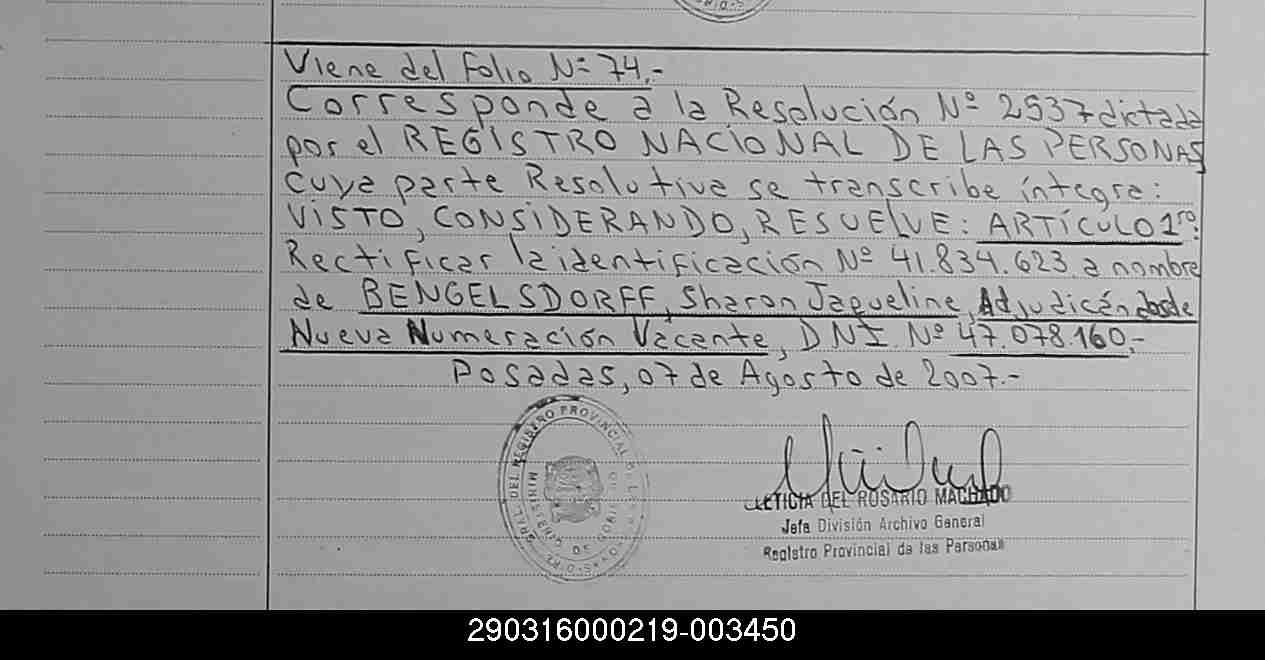 Viene del Folio Nº 74.-
Corresponde a la Resolución Nº 2937 dictada
por el REGISTRO NACIONAL DE LAS PERSONAS
cuya parte Resolutiva se transcribe íntegra:
VISTO, CONSIDERANDO, RESUELVE: ARTÍCULO 1ro:
Rectificar la identificación Nº 41.834.623 a nombre
de BENGELSDORFF, Sharon Jaqueline, Adjudicándosde
Nueva Numeración Vacante, DNI Nº 47.078.160.-
Posadas, 07 de Agosto de 2007.-
GRAL. DEL REGISTRO PROVINCIAL DE LAS PERSONAS
MINISTERIO DE GOBIERNO
LETICIA DEL ROSARIO MACHADO
Jefa División Archivo General
Registro Provincial de las Personas
290316000219-003450